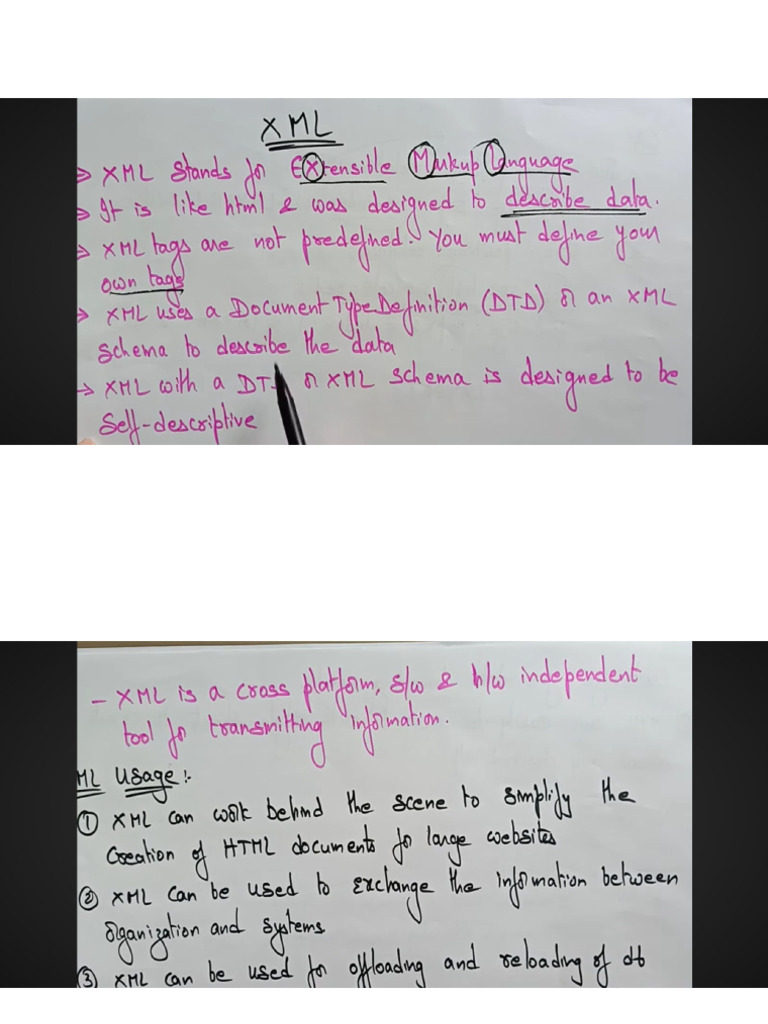 XML
→ XML stands for EXtensible Markup Language
→ It is like html & was designed to describe data.
→ XML tags are not predefined. You must define your
own tags
→ XML uses a Document Type Definition (DTD) or an XML
Schema to describe the data
→ XML with a DT or XML schema is designed to be
Self-descriptive
- XML is a cross platform, s/w & h/w independent
tool for transmitting information.
ML Usage:-
① XML can work behind the scene to simplify the
Creation of HTML documents for large websites
② XML can be used to exchange the information between
organization and systems
③ XML can be used for offloading and reloading of db